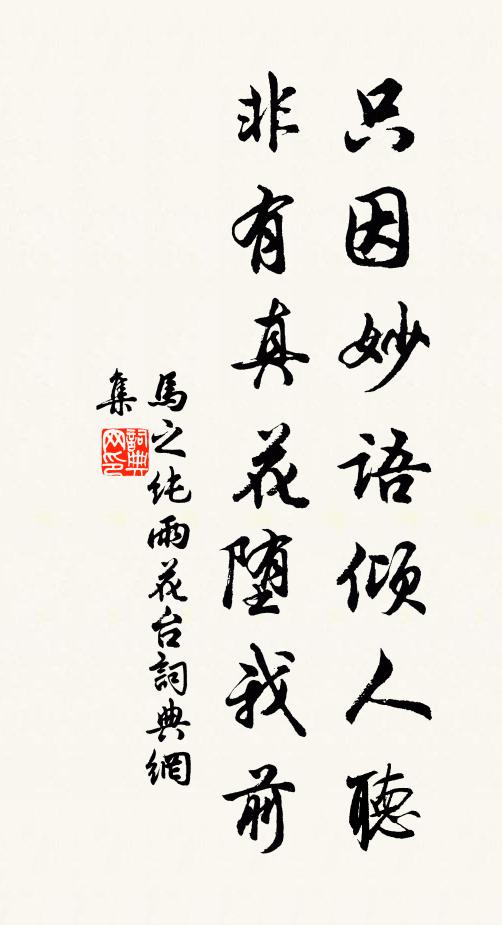 只因妙语倾人聽
非有真花堕我前
馬之纯雨花台詞典網
集
詞典网印